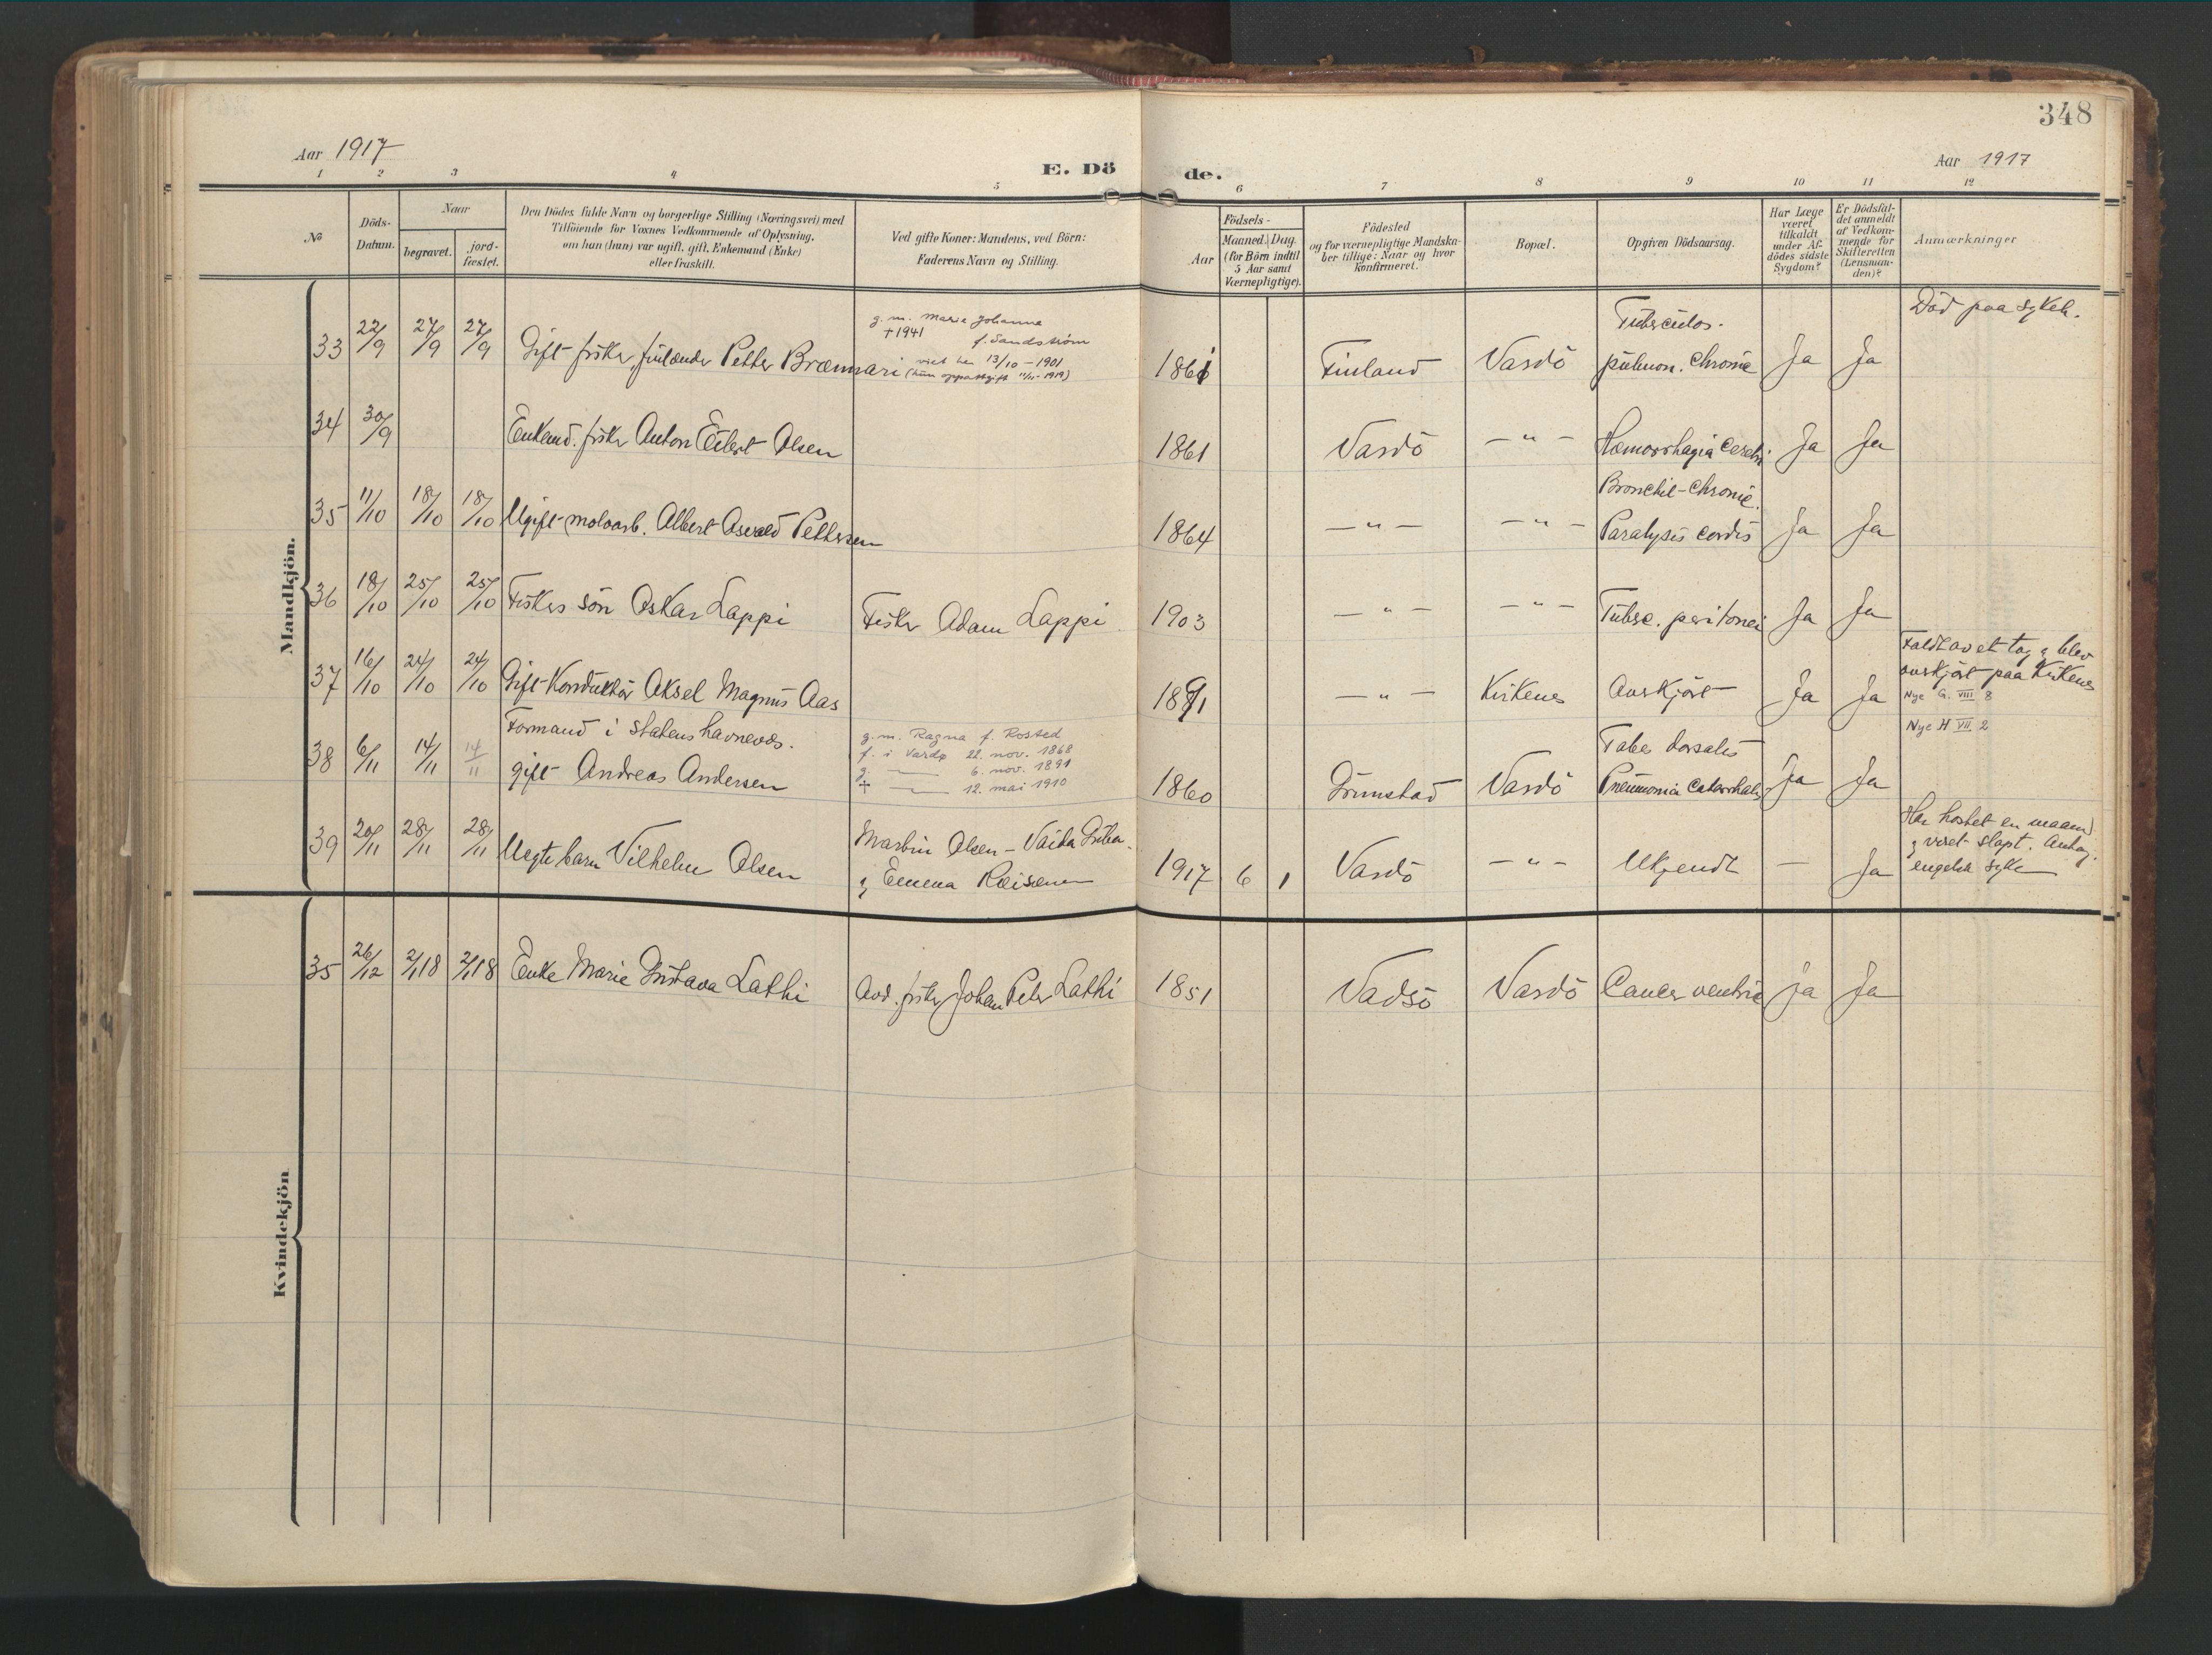 348
Aar 1917
E. Dö
de.
Aar 1917
1 2 3 4 5 6 7 8 9 10 11 12
№
Döds-
Datum.
Naar
begravet.
jord-
fæstet.
Den Dödes fulde Navn og borgerlige Stilling (Næringsvei) med
Tilföiende for Voxnes Vedkommende af Oplysning,
om han (hun) var ugift, gift, Enkemand (Enke)
eller fraskilt.
Ved gifte Koner: Mandens, ved Börn:
Faderens Navn og Stilling.
Födsels-
Aar
Maaned. Dag.
(for Börn indtil
5 Aar samt
Værnepligtige).
Födested
og for værnepligtige Mandska-
ber tillige: Naar og hvor
konfirmeret.
Bopæl.
Opgiven Dödsaarsag.
Har Læge
været
tilkaldt
under Af-
dödes sidste
Sygdom?
Er Dödsfal-
det anmeldt
af Vedkom-
mende for
Skifteretten
(Lensman-
den)?
Anmærkninger
Mandkjön.
33 22/9 27/9 27/9 Gift fisker, finlænder Petter Brænnari
g. m. Marie Johanna
+ 1941 f. Sandström
viet her 13/10 - 1901
1861 Finland Vardö
Tuberculos.
pulmon. Chronic Ja Ja
Död paa sykeh.
34 30/9 Enkemd. fisker Anton Edvert Olsen 1861 Vardö — " — Hæmorrhagia cerebri Ja Ja
35 11/10 18/10 18/10 Ugift moloarb. Albert Osvald Pettersen 1864 — " — — " —
Bronchit-Chronic.
Paralysis cordis Ja Ja
36 18/10 25/10 25/10 Fiskers sön Oskar Lappi Fisker Adam Lappi 1903 — " — — " — Tuberc. peritonei Ja Ja
37 16/10 24/10 24/10 Gift Konduktör Aksel Magnus Aas 1891 — " — Kirkenes Overkjört Ja Ja
Faldt av et tog og blev
overkjört paa Kirkenes
Nye G. VIII 8
38 6/11 14/11 14/11 Formand i statens havnevæs.
gift Andreas Andersen
g. m. Ragna f. Rosted
f. i Vardø 22. nov. 1868
g. — 6. nov. 1891
+ — 12. mai 1910
1860 Grimstad Vardö
Tabes dorsalis
Pneumonia catarrhalis Ja Ja
Nye H VII 2
39 20/11 28/11 28/11 Uegte barn Vilhelm Olsen
Martin Olsen -
og Emma Reisænen
1917 6 1 Vardö — " — Ukjendt — Ja
Har hostet en maaned
og været slapt. Antag.
engelsk syke
Kvindekjön
35 26/12 2/1 18 2/1 18 Enke Marie Gustava Lathi Avd. fisker Johan Peter Lathi 1851 Vadsö Vardö Cancer ventric ja Ja